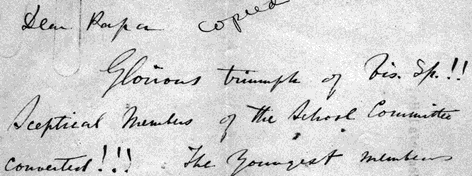 Dear Papa copied
Glorious triumph of Vis. Sp.!!
Sceptical Members of the School Committee
converted!!! The Youngest members